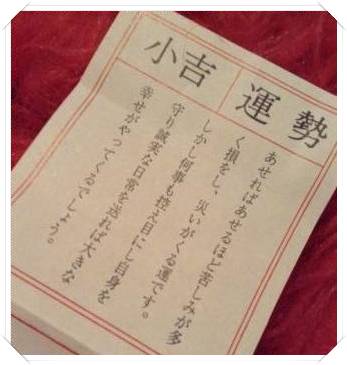 運勢
小吉
あせればあせるほど苦しみが多
く損をし、災いがくる運です。
しかし何事も控え目にし自身を
守り誠実な日常を送れば大きな
幸せがやってくるでしょう。